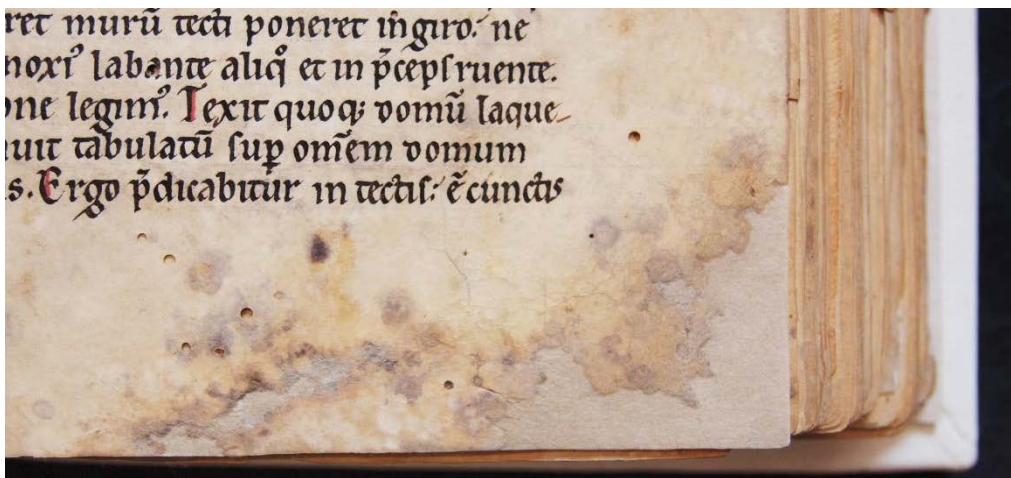 ret murū tecti poneret ingiro. ne
noxiꝰ labante aliqͦ et in p̄ceps ruente.
one legimꝰ. Texit quoqꝫ domū laque-
uit tabulatū suꝑ omēm domum
s. Ergo p̄dicabitur in tectis: ē cunctis